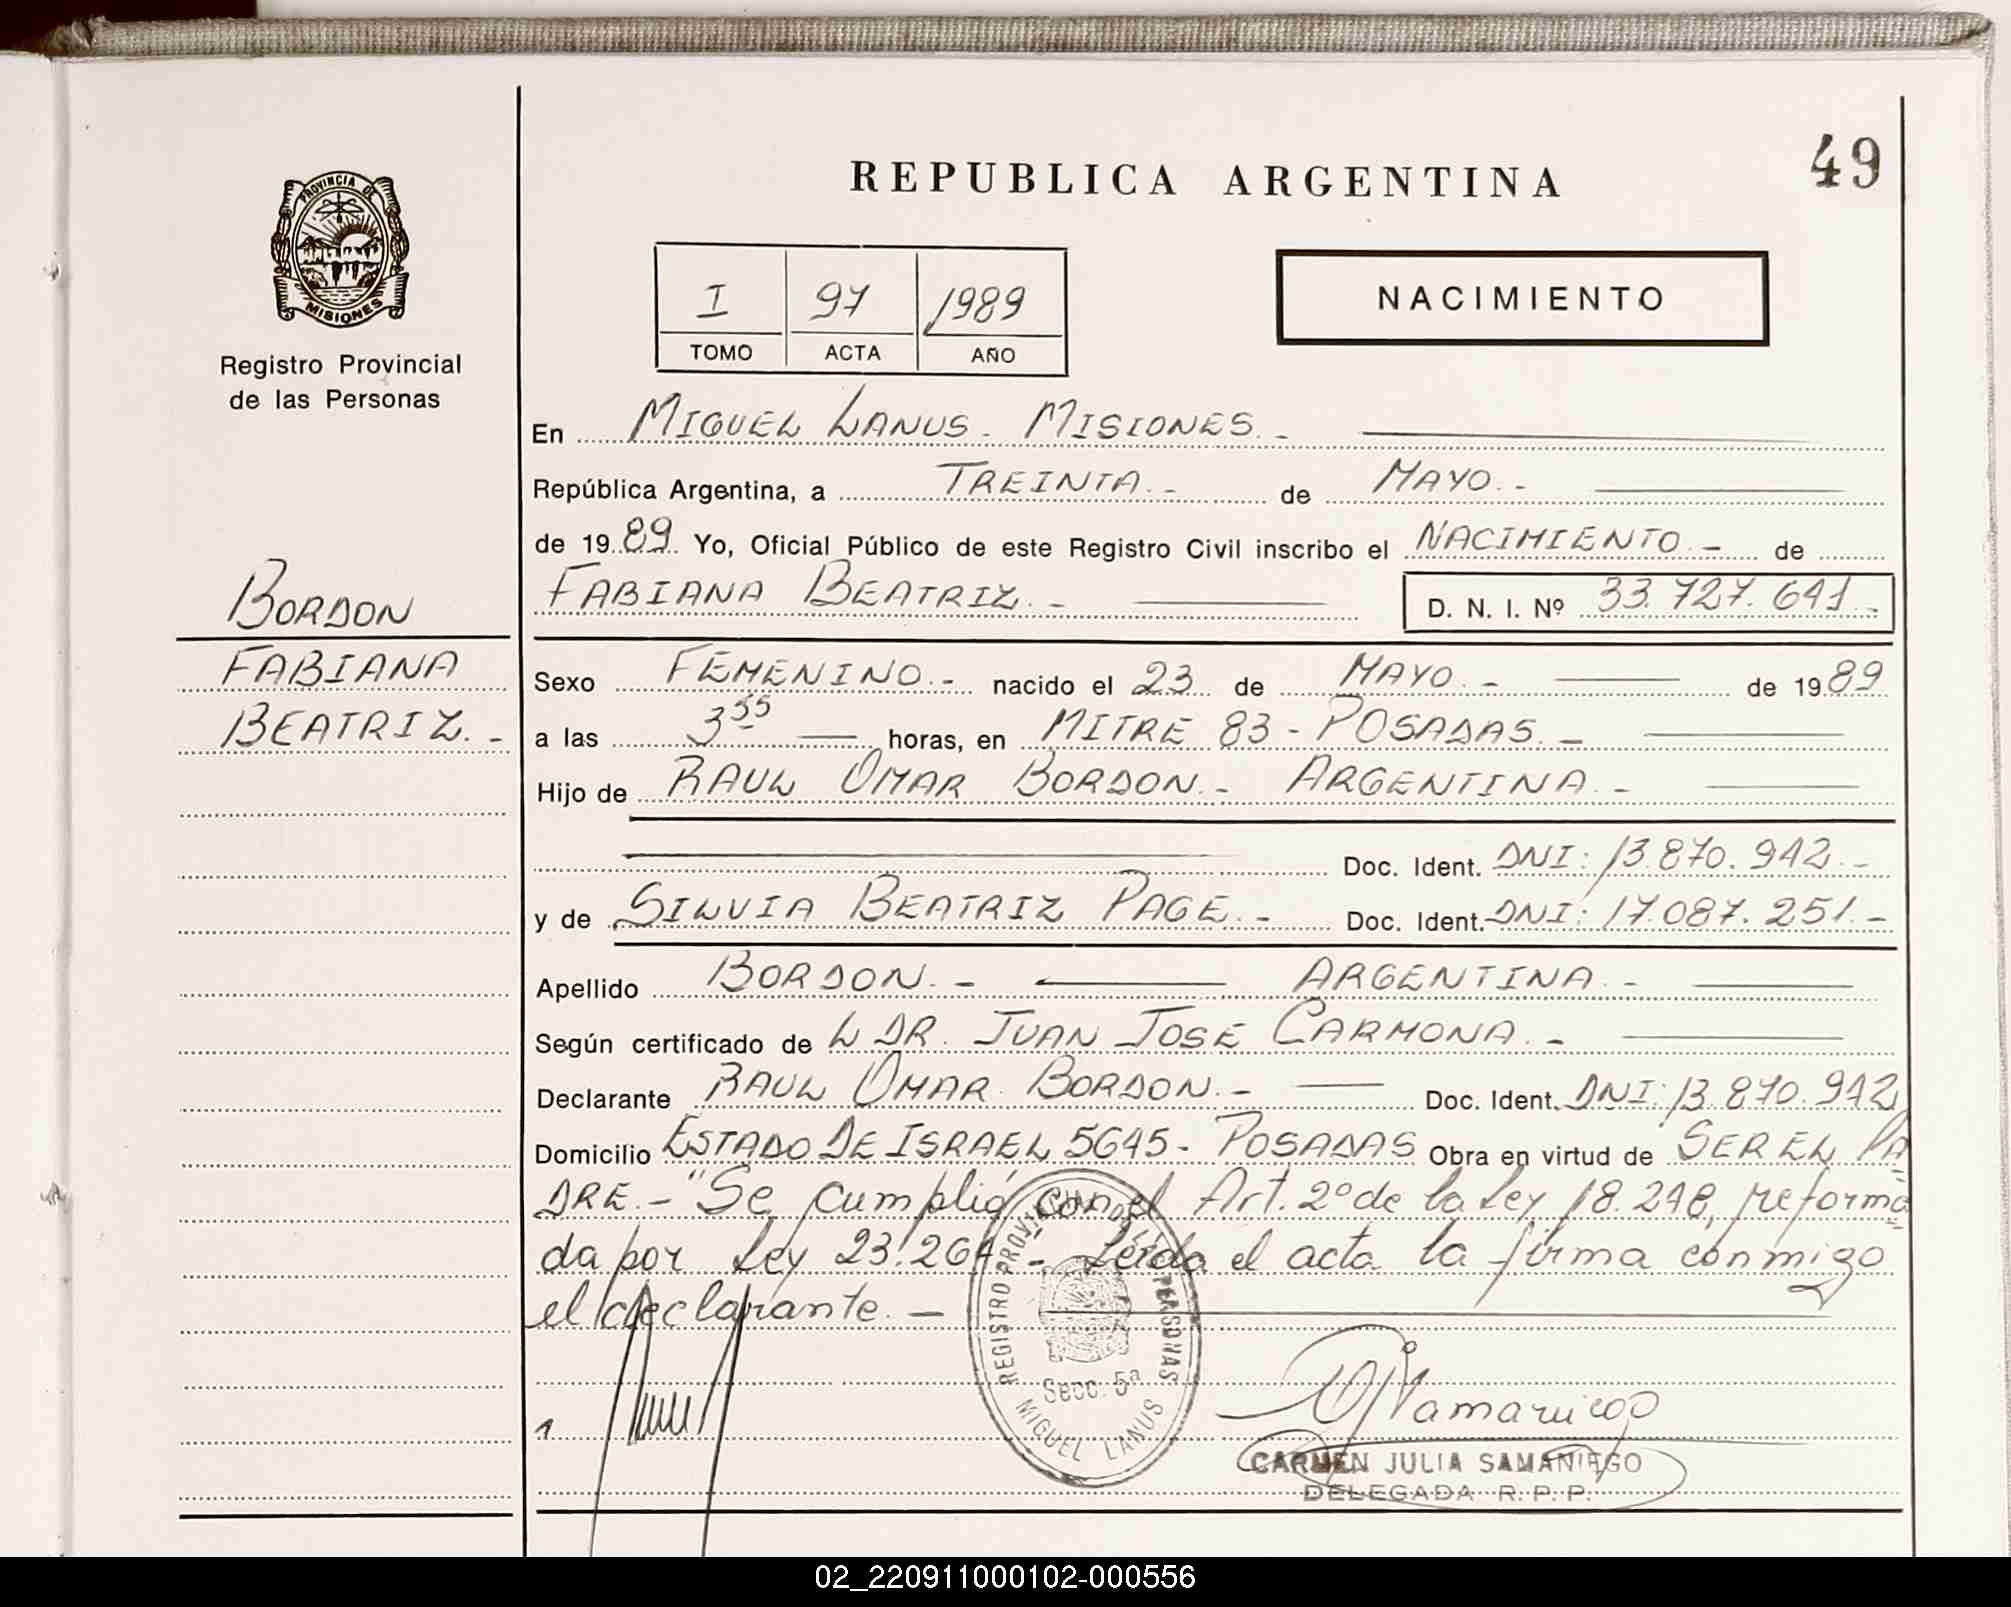 REPUBLICA ARGENTINA
49
PROVINCIA DE
MISIONES
Registro Provincial
de las Personas
I 97 1989
TOMO ACTA AÑO
NACIMIENTO
En MIGUEL LANUS - MISIONES.-
República Argentina, a TREINTA.- de MAYO.-
de 1989 Yo, Oficial Público de este Registro Civil inscribo el NACIMIENTO.- de
FABIANA BEATRIZ.- D. N. I. Nº 33.727.641.-
BORDON
FABIANA
BEATRIZ.-
Sexo FEMENINO.- nacido el 23 de MAYO.- de 1989
a las 3 55 horas, en MITRE 83 - POSADAS.-
Hijo de RAUL OMAR BORDON.- ARGENTINA.-
Doc. Ident. DNI: 13.870.942.-
y de SILVIA BEATRIZ PAGE.- Doc. Ident. DNI: 17.087.251.-
Apellido BORDON.- ARGENTINA.-
Según certificado de L DR. JUAN JOSE CARMONA.-
Declarante RAUL OMAR BORDON.- Doc. Ident. DNI: 13.870.942
Domicilio ESTADO DE ISRAEL 5645 - POSADAS Obra en virtud de SER EL PA
DRE.- "Se cumplió con el Art. 2º de la Ley 18.248, reforma=
da por Ley 23.264.- Leída el acta la firma conmigo
el declarante.-
REGISTRO PROVINCIAL DE LAS PERSONAS
Secc. 5ª
MIGUEL LANUS
CARMEN JULIA SAMANIEGO
DELEGADA R. P. P.
02_220911000102-000556